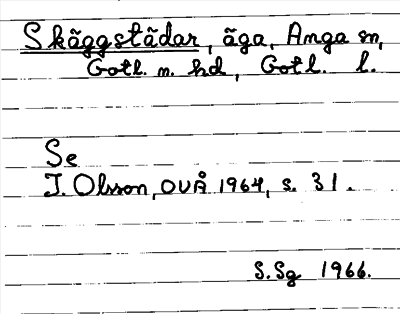 Skäggstädar, äga, Anga sn,
Gotl. n. hd, Gotl. l.
Se
I. Olsson, OUÅ 1964, s. 31.
S.Sg 1966.